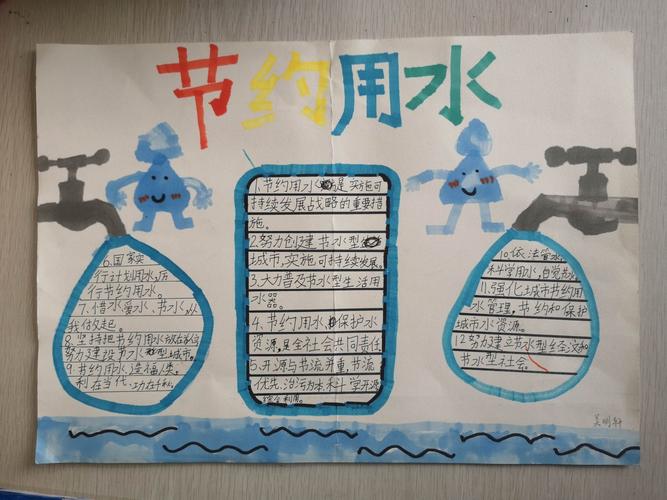 节约用水
1.节约用水是实施可
持续发展战略的重要措
施。
2.努力创建节水型
城市,实施可持续发展。
3.大力普及节水型生活用
水器。
4、节约用水保护水
资源,是全社会共同责任
5.开源与节流并重,节流
优先、治污为本,科学开源
综合利用。
6.国家实
行计划用水,厉
行节约用水。
7、惜水、爱水、节水,从
我做起。
8.坚持把节约用水放在首位
努力建设节水型城市。
9.节约用水,造福人类。
利在当代、功在千秋。
10.依法管水
科学用水,自觉节水
11.强化城市节约用
水管理,节约和保护
城市水资源。
12.努力建立节水型经济和
节水型社会。
吴明轩